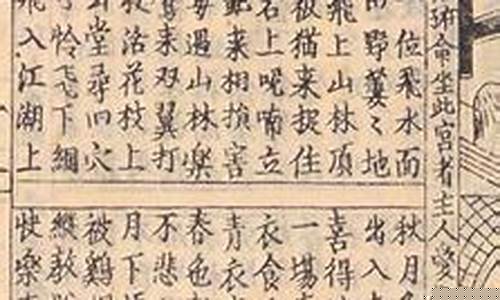 命坐此宮者主人
位飛水面
野萋々地
飛上山林頂
被猫来捉住
石上呢喃立
来相損害
每過山林樂
来双翼打
活花枝上
堂尋旧穴
怜飞飞下網
飛入江湖上
秋月
出入
喜得
一場
衣食
青衣
春色
不悲
月下
被鷄
縱教
快樂